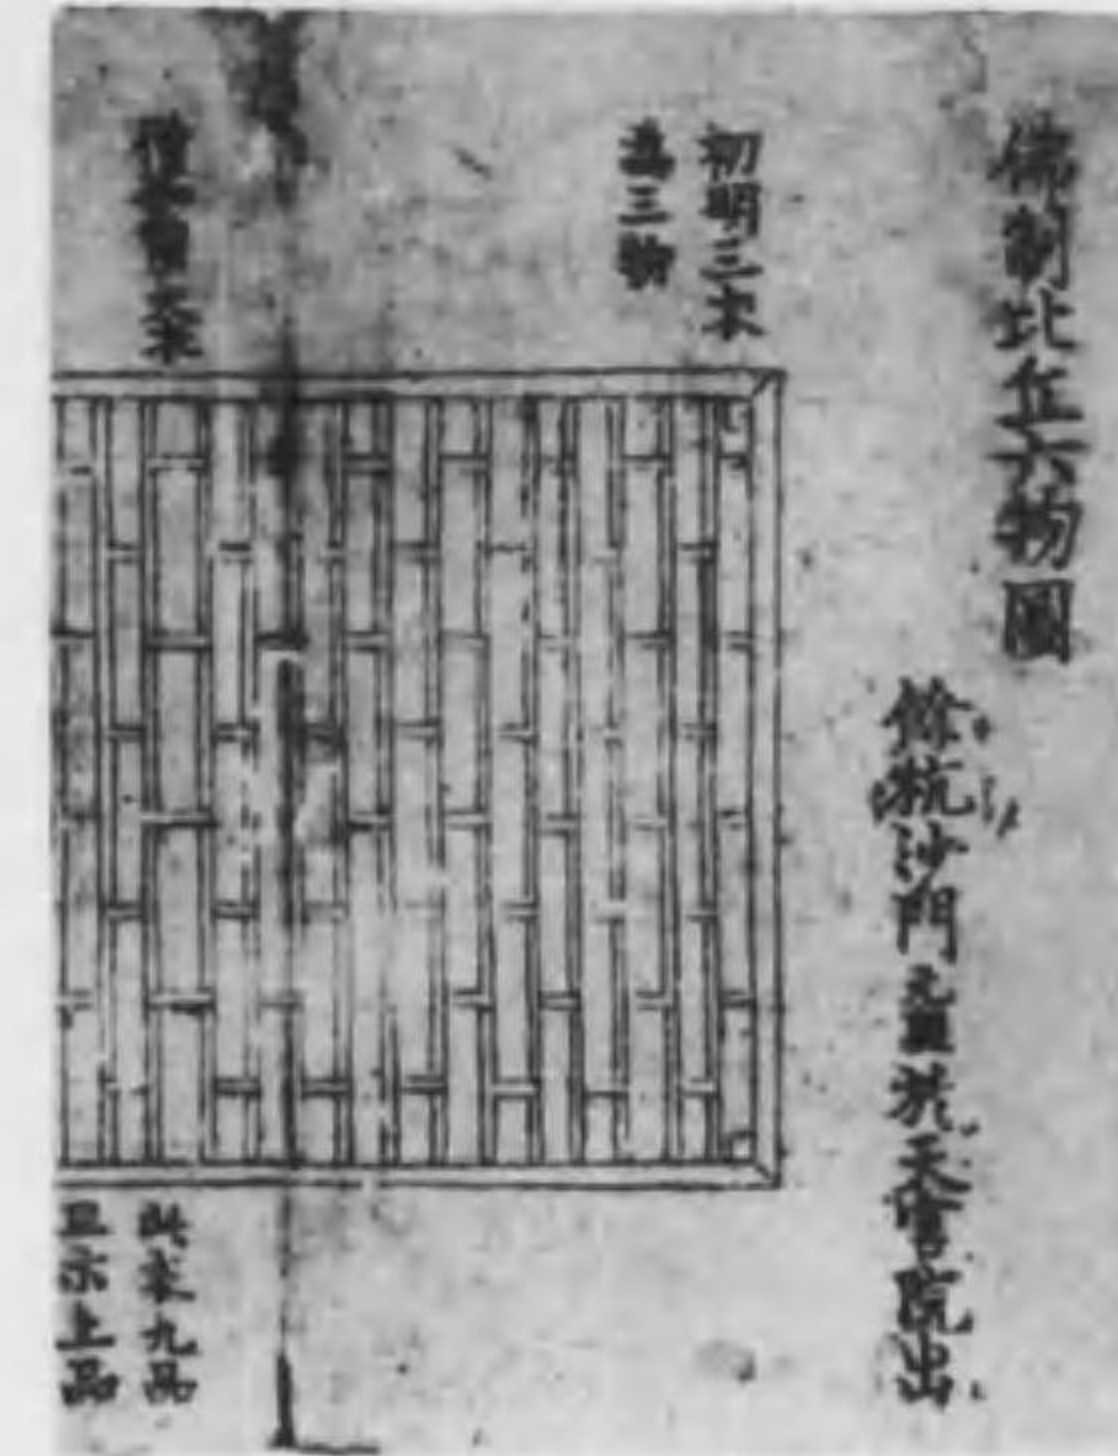 佛制比丘六物圖
餘杭沙門元照於天宮院出
初明三衣
為三物
僧伽梨
此衣九品
且示上品